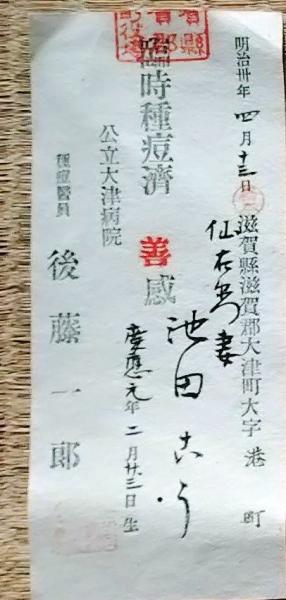 明治卅年四月十三日
滋賀縣滋賀郡大津町大字港町
仙右衛門妻
池田
慶應元年二月廿三日生
臨時種痘濟
善感
公立大津病院
種痘醫員
後藤一郎